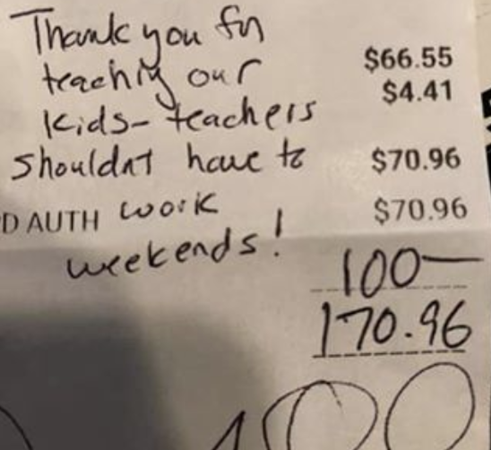 Thank you for
teaching our
$66.55
$4.41
kids- teachers
shouldnt have to
$70.96
D AUTH work
$70.96
weekends!
100—
170.96